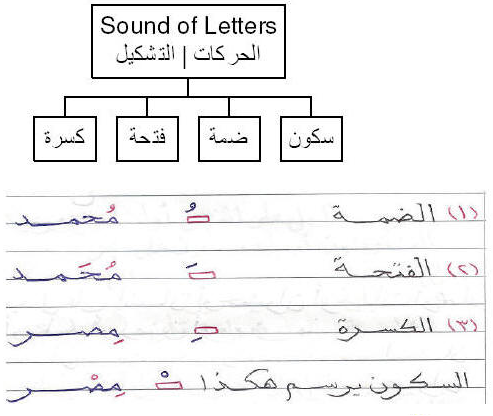 Sound of Letters
الحركات | التشكيل
سكون ضمة فتحة كسرة
(١) الضمة ـُ مُحمد
(٢) الفتحة ـَ مُحَمد
(٣) الكسرة ـِ مِصر
السكون يرسم هكذا ـْ مِصْر